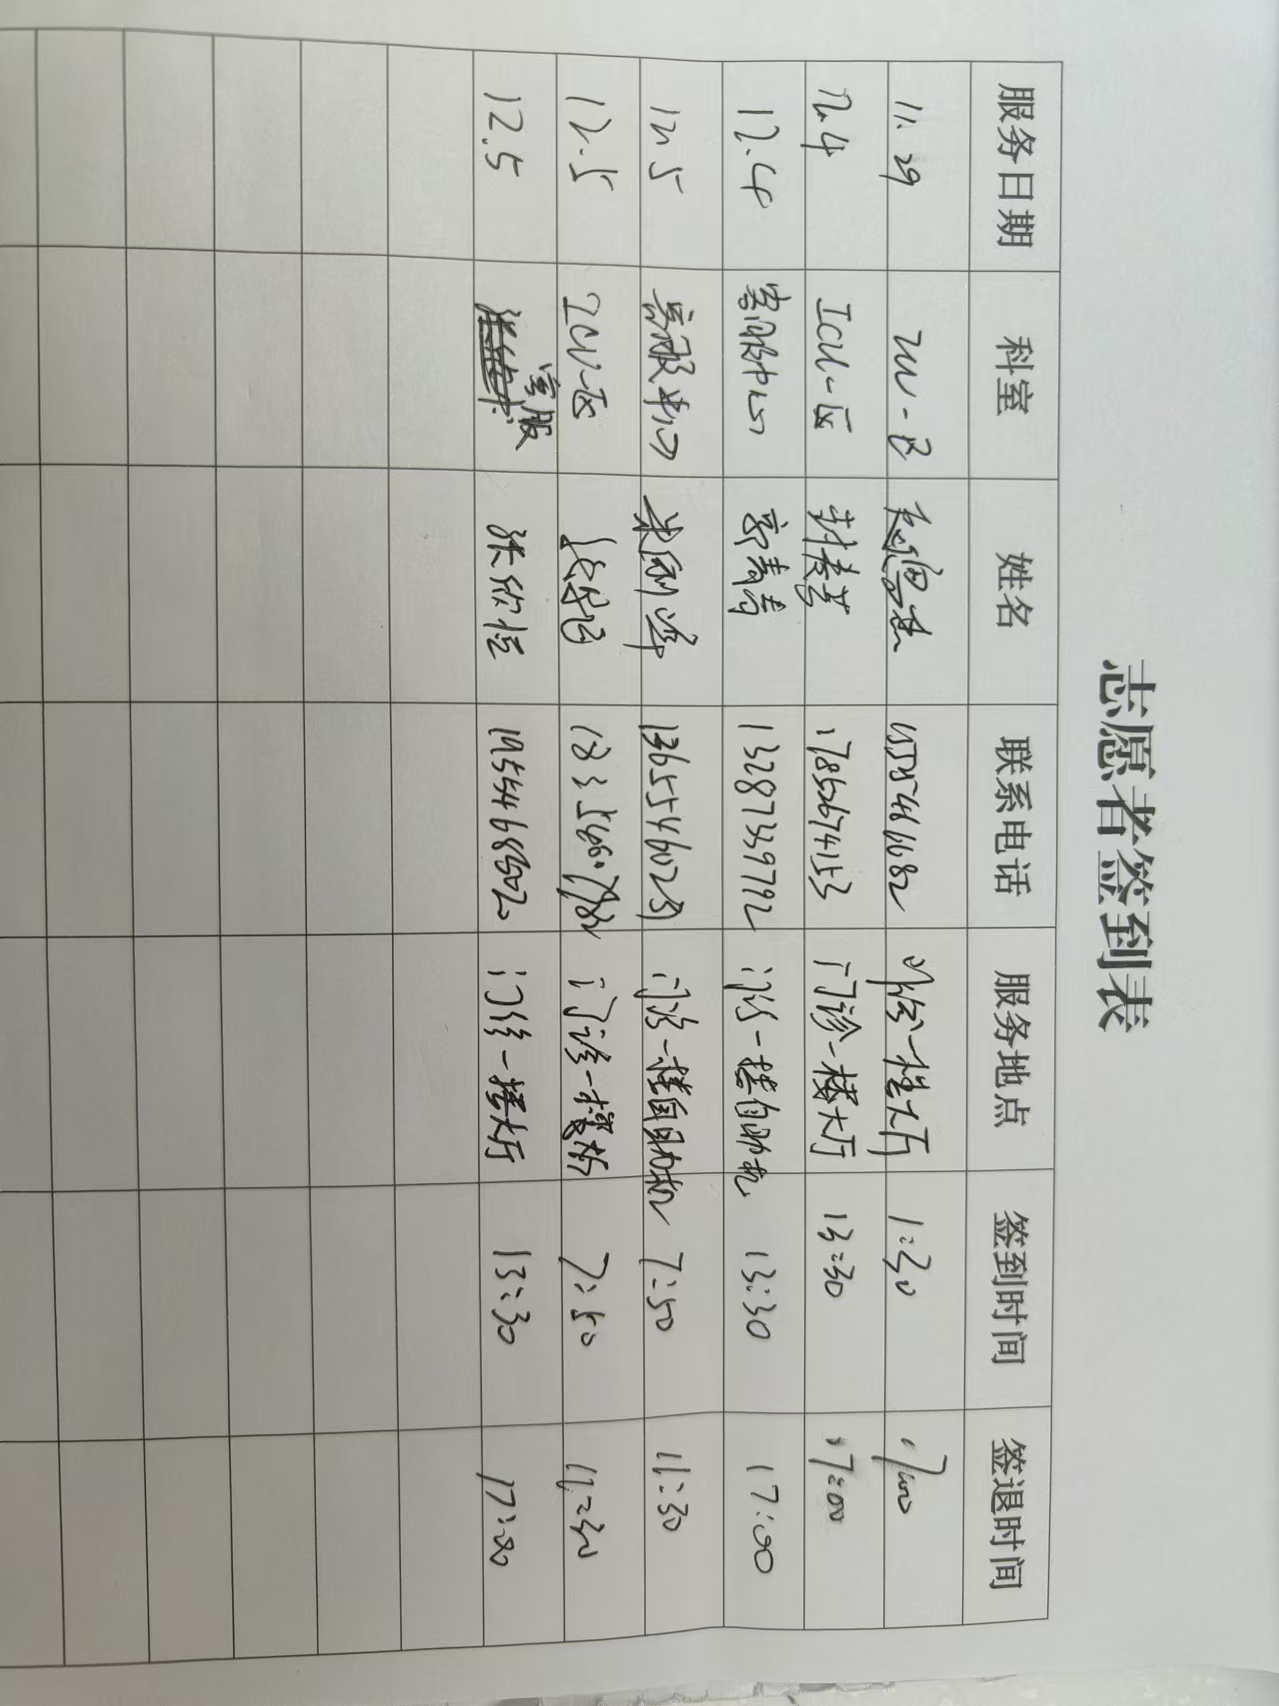 志愿者签到表
服务日期 科室 姓名 联系电话 服务地点 签到时间 签退时间
11.29 门诊一楼大厅 1:30 17:00
12.4 ICU一区 17862674153 门诊一楼大厅 13:30 17:00
12.4 客服中心 郭寿寿 13287339792 门诊一楼自助机 13:30 17:00
12.5 客服中心 门诊一楼自助机 7:50 11:30
12.5 ICU一区 门诊一楼大厅 7:50 11:30
12.5 客服 张欣怡 门诊一楼大厅 13:30 17:00